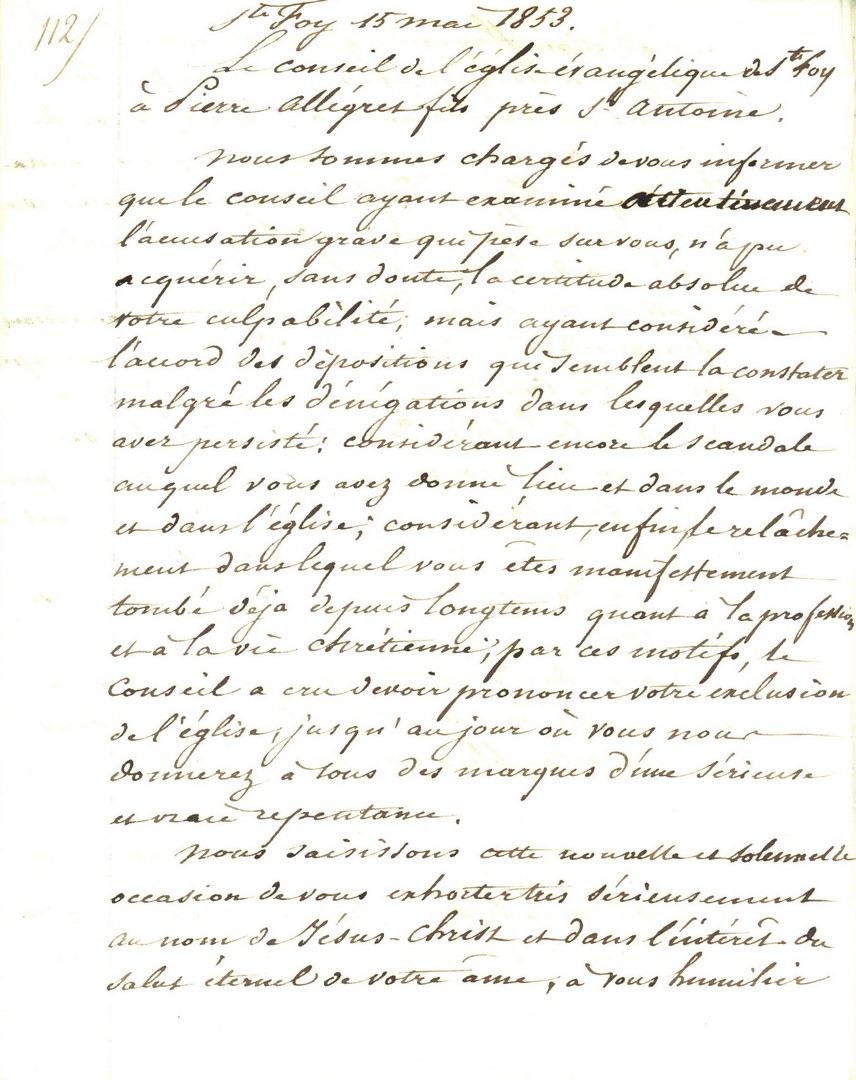 112/
Ste Foy 15 mai 1853.
Le conseil de l'église évangélique de Ste Foy
à Pierre Allégret fils près St Antoine.
Nous sommes chargés de vous informer
que le conseil ayant examiné attentivement
l'accusation grave qui pèse sur vous, n'a pu
acquérir, sans doute, la certitude absolue de
votre culpabilité; mais ayant considéré
l'accord des dépositions qui semblent la constater
malgré les dénégations dans lesquelles vous
avez persisté; considérant encore le scandale
auquel vous avez donné lieu et dans le monde
et dans l'église; considérant, enfin, le relâche=
ment dans lequel vous êtes manifestement
tombé déja depuis longtems quant à la profession
et à la vie chrétienne; par ces motifs, le
Conseil a cru devoir prononcer votre exclusion
de l'église, jusqu'au jour où vous nous
donnerez à tous des marques d'une sérieuse
et vraie repentance.
Nous saisissons cette nouvelle et solennelle
occasion de vous exhorter très sérieusement
au nom de Jésus-Christ et dans l'intérêt du
salut éternel de votre âme, à vous humilier